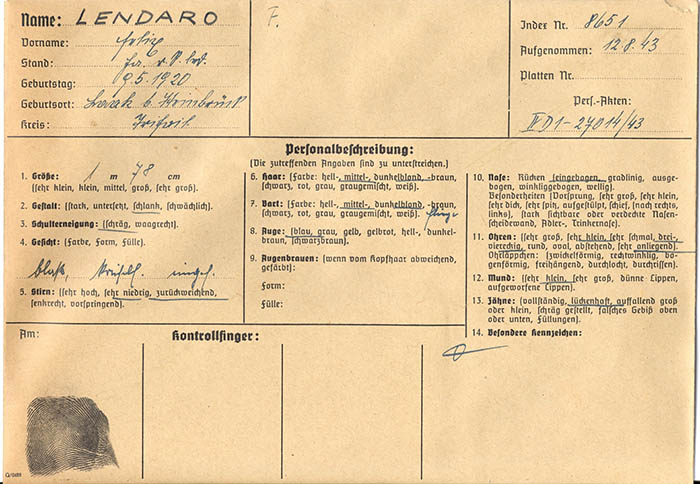 Name: LENDARO
Vorname: Felix
Stand:
Geburtstag: 9.5.1920
Geburtsort: b. Steinbrück
Kreis: Trifail
F.
Index Nr. 8651
Aufgenommen: 12.8.43
Platten Nr.
Pers.-Akten:
IV D1-27014/43
Personalbeschreibung:
(Die zutreffenden Angaben sind zu unterstreichen.)
1. Größe: 1 m 78 cm
(sehr klein, klein, mittel, groß, sehr groß).
2. Gestalt: (stark, untersetzt, schlank, schwächlich).
3. Schulterneigung: (schräg, waagrecht).
4. Gesicht: (Farbe, Form, Fülle).
blaß,
5. Stirn: (sehr hoch, sehr niedrig, zurückweichend,
senkrecht, vorspringend).
6. Haar: (Farbe: hell-, mittel-, dunkelblond, -braun,
schwarz, rot, grau, graugemischt, weiß).
7. Bart: (Farbe: hell-, mittel-, dunkelblond, -braun,
schwarz, rot, grau, graugemischt, weiß).
8. Auge: (blau, grau, gelb, gelbrot, hell-, dunkel-
braun, schwarzbraun).
9. Augenbrauen: (wenn vom Kopfhaar abweichend,
gefärbt):
Form:
Fülle:
10. Nase: Rücken (eingebogen, gradlinig, ausge-
bogen, winkliggebogen, wellig).
Besonderheiten (Vorsprung, sehr groß, sehr klein,
sehr dick, sehr spitz, aufgestülpt, schief, (nach rechts,
links), stark sichtbare oder verdeckte Nasen-
scheidewand, Adler-, Trinkernase).
11. Ohren: (sehr groß, sehr klein, sehr schmal, drei-,
viereckig, rund, oval, abstehend, sehr anliegend).
Ohrläppchen: (zwickelförmig, rechtwinklig, bo-
genförmig, freihängend, durchlocht, durchrissen).
12. Mund: (sehr klein, sehr groß, dünne Lippen,
aufgeworfene Lippen).
13. Zähne: (vollständig, lückenhaft, auffallend groß
oder klein, schräg gestellt, falsches Gebiß oben
oder unten, Füllungen).
14. Besondere Kennzeichen:
Am:
Kontrollfinger: